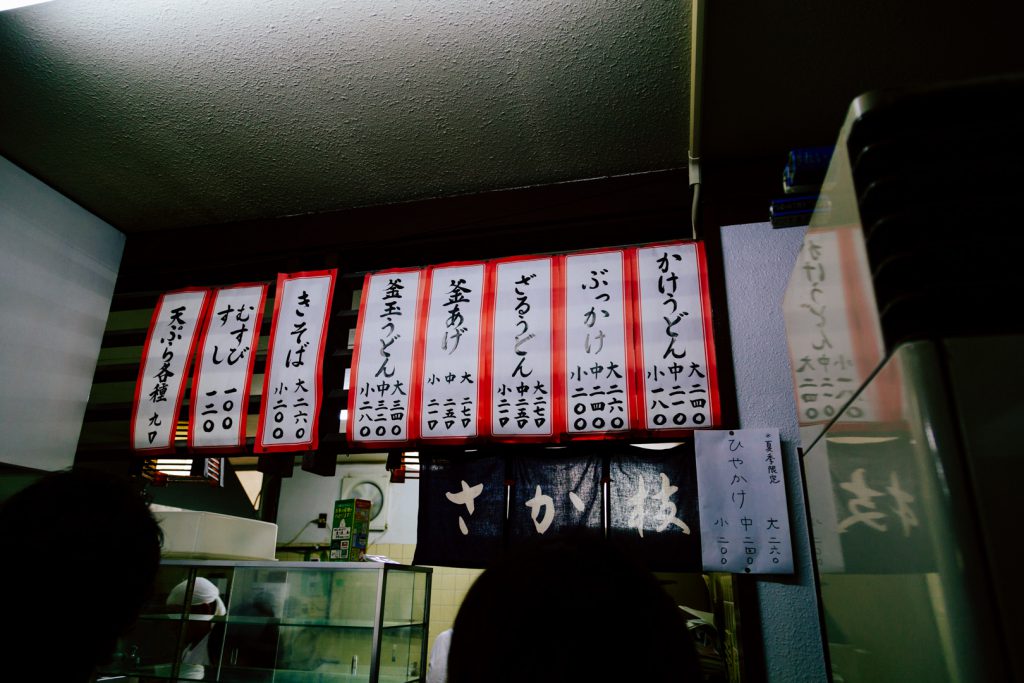 かけうどん
大二四〇
中二一〇
小一八〇
ぶっかけ
大二六〇
中二四〇
小二〇〇
ざるうどん
大二七〇
中二五〇
小二一〇
釜あげ
大二七〇
中二五〇
小二一〇
釜玉うどん
大三四〇
中三〇〇
小二八〇
きそば
大二六〇
小二〇〇
むすび 一〇〇
すし 一二〇
天ぷら各種 九〇
さか枝
*夏季限定
ひやかけ
大二六〇
中二四〇
小二〇〇